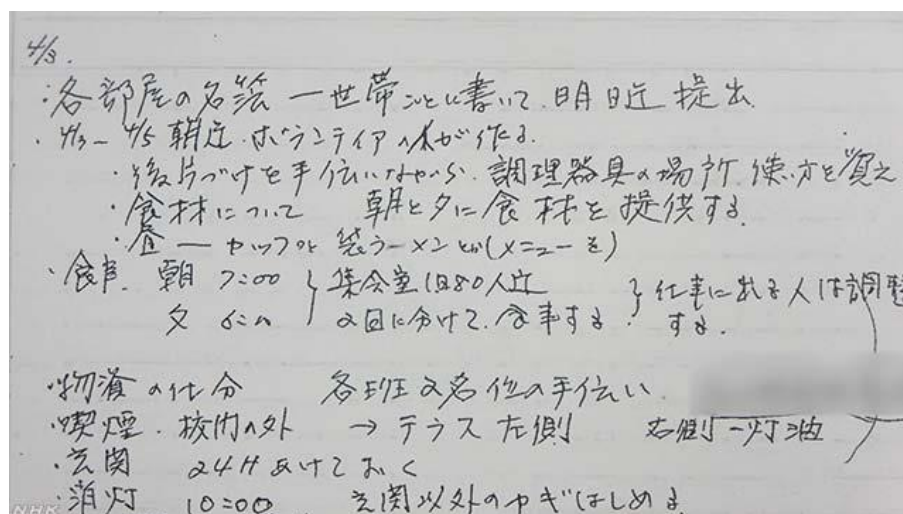 4/3.
・各部屋の名簿 一世帯ごとに書いて、明日迄 提出
・4/3-4/5 朝迄 ボランティアの人が作る。
・後片づけを手伝いながら、調理器具の場所、使い方を覚え
・食材について 朝と夕に食材を提供する。
・昼 ー カップめん 袋ラーメンとか(メニューを)
・食事 朝 7:00 集会室1回80人迄 仕事に出る人は調整
夕 6:00 2回に分けて、食事する する。
・物資の仕分 各班2名位の手伝い
・喫煙・校門の外 → テラス左側 右側ー灯油
・玄関 24Hあけておく
・消灯 10:00 玄関以外のカギはしめる
NHK